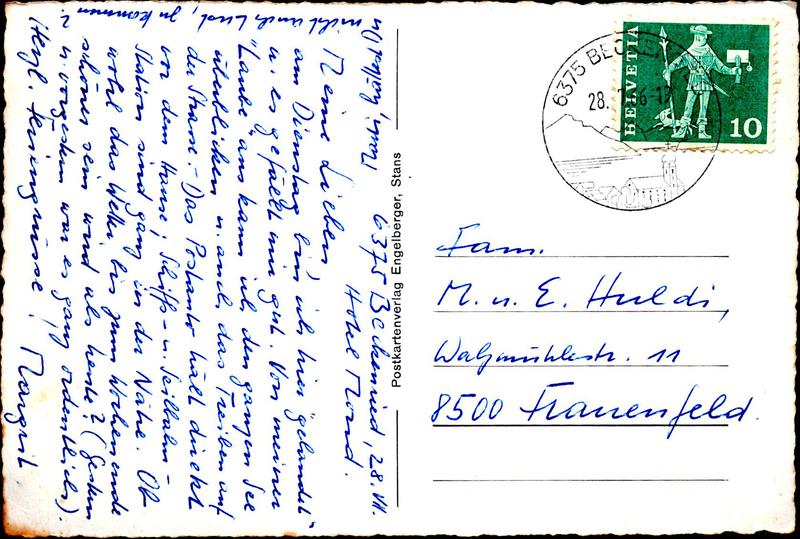 6375 Beckenried, 28. VII.
Hotel Mond.
Meine Lieben
am Dienstag bin ich hier "gelandet"
u. es gefällt mir gut. Von meiner
"Laube" aus kann ich den ganzen See
überblicken u. auch das Treiben auf
der Strasse. – Das Postauto hält direkt
vor dem Hause; Schiffs- u. Seilbahn-
Station sind ganz in der Nähe. Ob
wohl das Wetter bis zum Wochenende
schöner sein wird als heute? (Gestern
u. vorgestern war es ganz ordentlich).
Herzl. Feriengrüsse! Margrit
nicht auch Lust, zu kommen
?
Postkartenverlag Engelberger, Stans
6375 BECKEN
28.
HELVETIA
10
Fam.
M. u. E. Huldi,
Walzmühlestr. 11
8500 Frauenfeld.